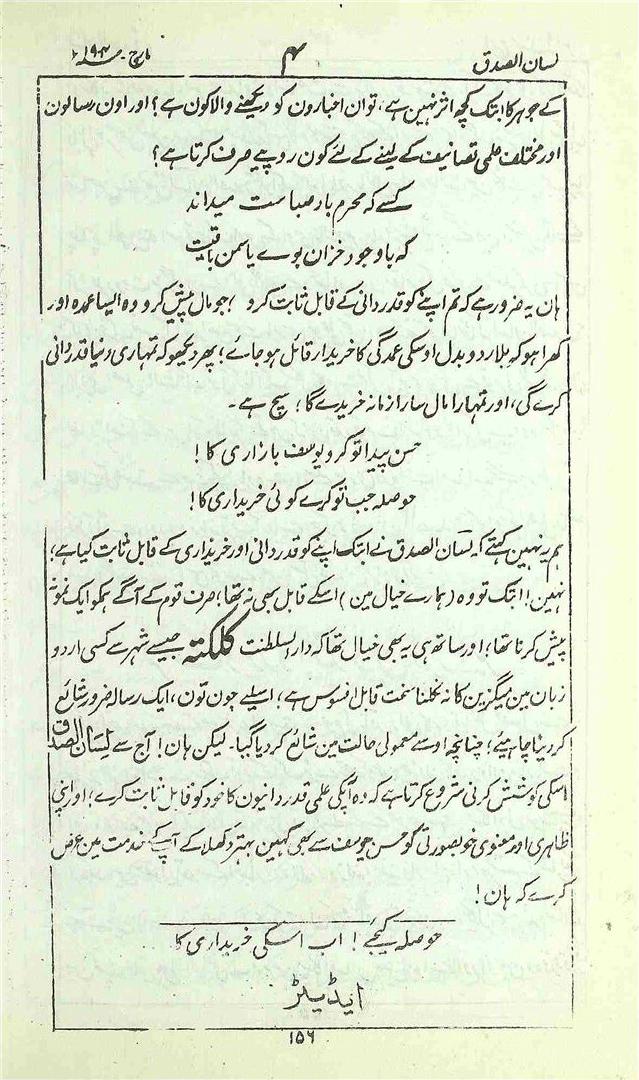 لسان الصدق ۴ مارچ
کے جوہر کا ابتک کچھ اثر نہین ہے، تو ان اخبارون کو دیکھنے والا کون ہے؟ اور اون رسالون
اور مختلف علمی تصانیف کے لینے کے لئے کون روپیے صرف کرتا ہے؟
کسے کہ محرم باد صباست میداند
کہ باوجود خزان بوے یاسمن باقیست
ہان یہ ضرور ہے کہ تم اپنے کو قدردانی کے قابل ثابت کرو؛ جو مال پیش کرو وہ ایسا عمدہ اور
کھرا ہو کہ بلا رد و بدل اوسکی عمدگی کا خریدار قائل ہو جاے؛ پھر دیکھو کہ تمہاری دنیا قدردانی
کرے گی، اور تمہارا مال سارا زمانہ خریدے گا؛ سچ ہے۔
حسن پیدا تو کرو یوسف بازاری کا!
حوصلہ جب تو کرے کوئی خریداری کا!
ہم یہ نہین کہتے کہ لسان الصدق نے ابتک اپنے کو قدردانی اور خریداری کے قابل ثابت کیا ہے؛
نہین! ابتک تو وہ (ہمارے خیال مین) اسکے قابل بھی نہ تھا؛ صرف قوم کے آگے ہمکو ایک نمونہ
پیش کرنا تھا؛ اور ساتھ ہی یہ بھی خیال تھا کہ دار السلطنت کلکتہ جیسے شہر سے کسی اردو
زبان مین میگزین کا نہ نکلنا سخت قابل افسوس ہے؛ اسلیے جون تون، ایک رسالہ ضرور شائع
کر دینا چاہیئے؛ چنانچہ اوسے معمولی حالت مین شائع کر دیا گیا۔ لیکن ہان! آج سے لسان الصدق
اسکی کوشش کرنی شروع کرتا ہے کہ وہ آپکی علمی قدردانیون کا خود کو قابل ثابت کرے؛ اور اپنی
ظاہری اور معنوی خوبصورتی کو حسن یوسف سے بھی کہین بہتر دکھلا کے آپ کے خدمت مین عرض
کرے کہ ہان!
حوصلہ کیجئے! اب اسکی خریداری کا
ایڈیٹر
۱۵۶